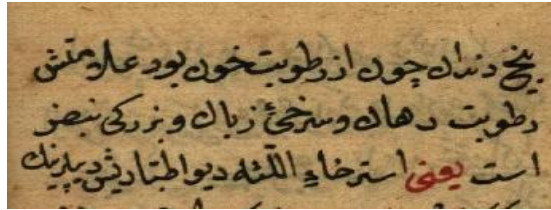 بیخ دندان چون از رطوبت خون بود علامتش
رطوبت دهان و سرخئ زبان و بزرکی نبض
است یعنی استرخاء اللثه دیواطبتا